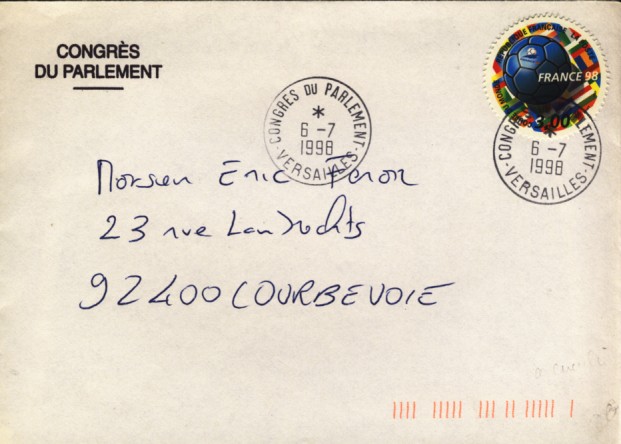 CONGRÈS
DU PARLEMENT
FRANCE 98
3,00
CONGRÈS DU PARLEMENT
*
6 -7
1998
VERSAILLES
CONGRÈS PARLEMENT
*
6 -7
1998
VERSAILLES
Monsieur Eric
23 rue
92400 COURBEVOIE